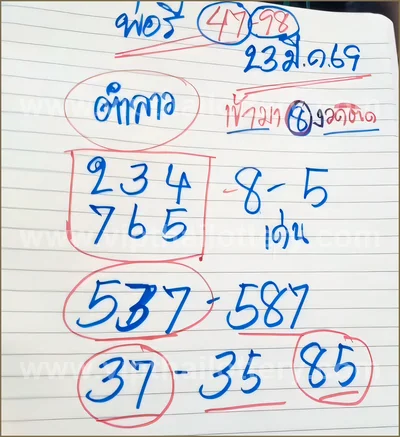 พ่อรี 47 98
23 มี.ค 69
ตำลาว
เข้ามา 8 งวดติด
2 3 4
7 6 5
-8-5
เด่น
537 - 587
37 - 35 85